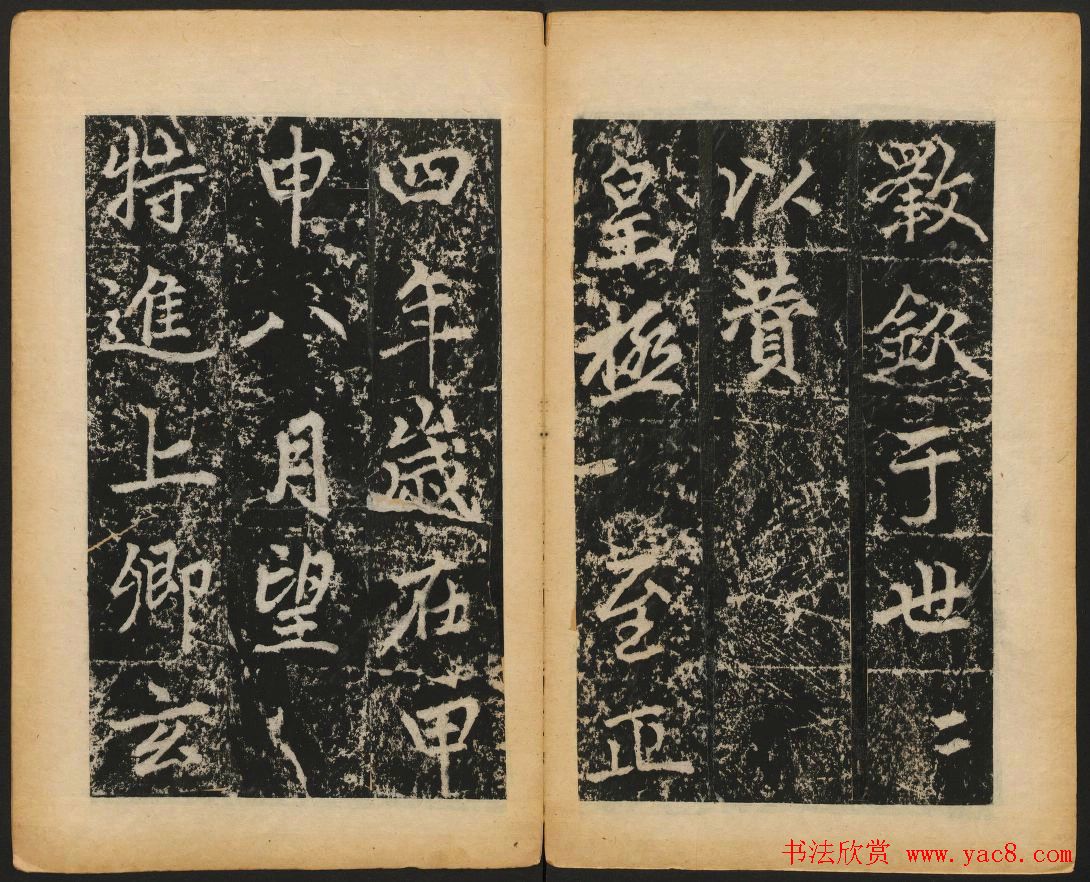 斁欽于世〻
以賛
皇極至正
四年歲在甲
申八月望
特進上卿玄
书法欣赏 www.yac8.com